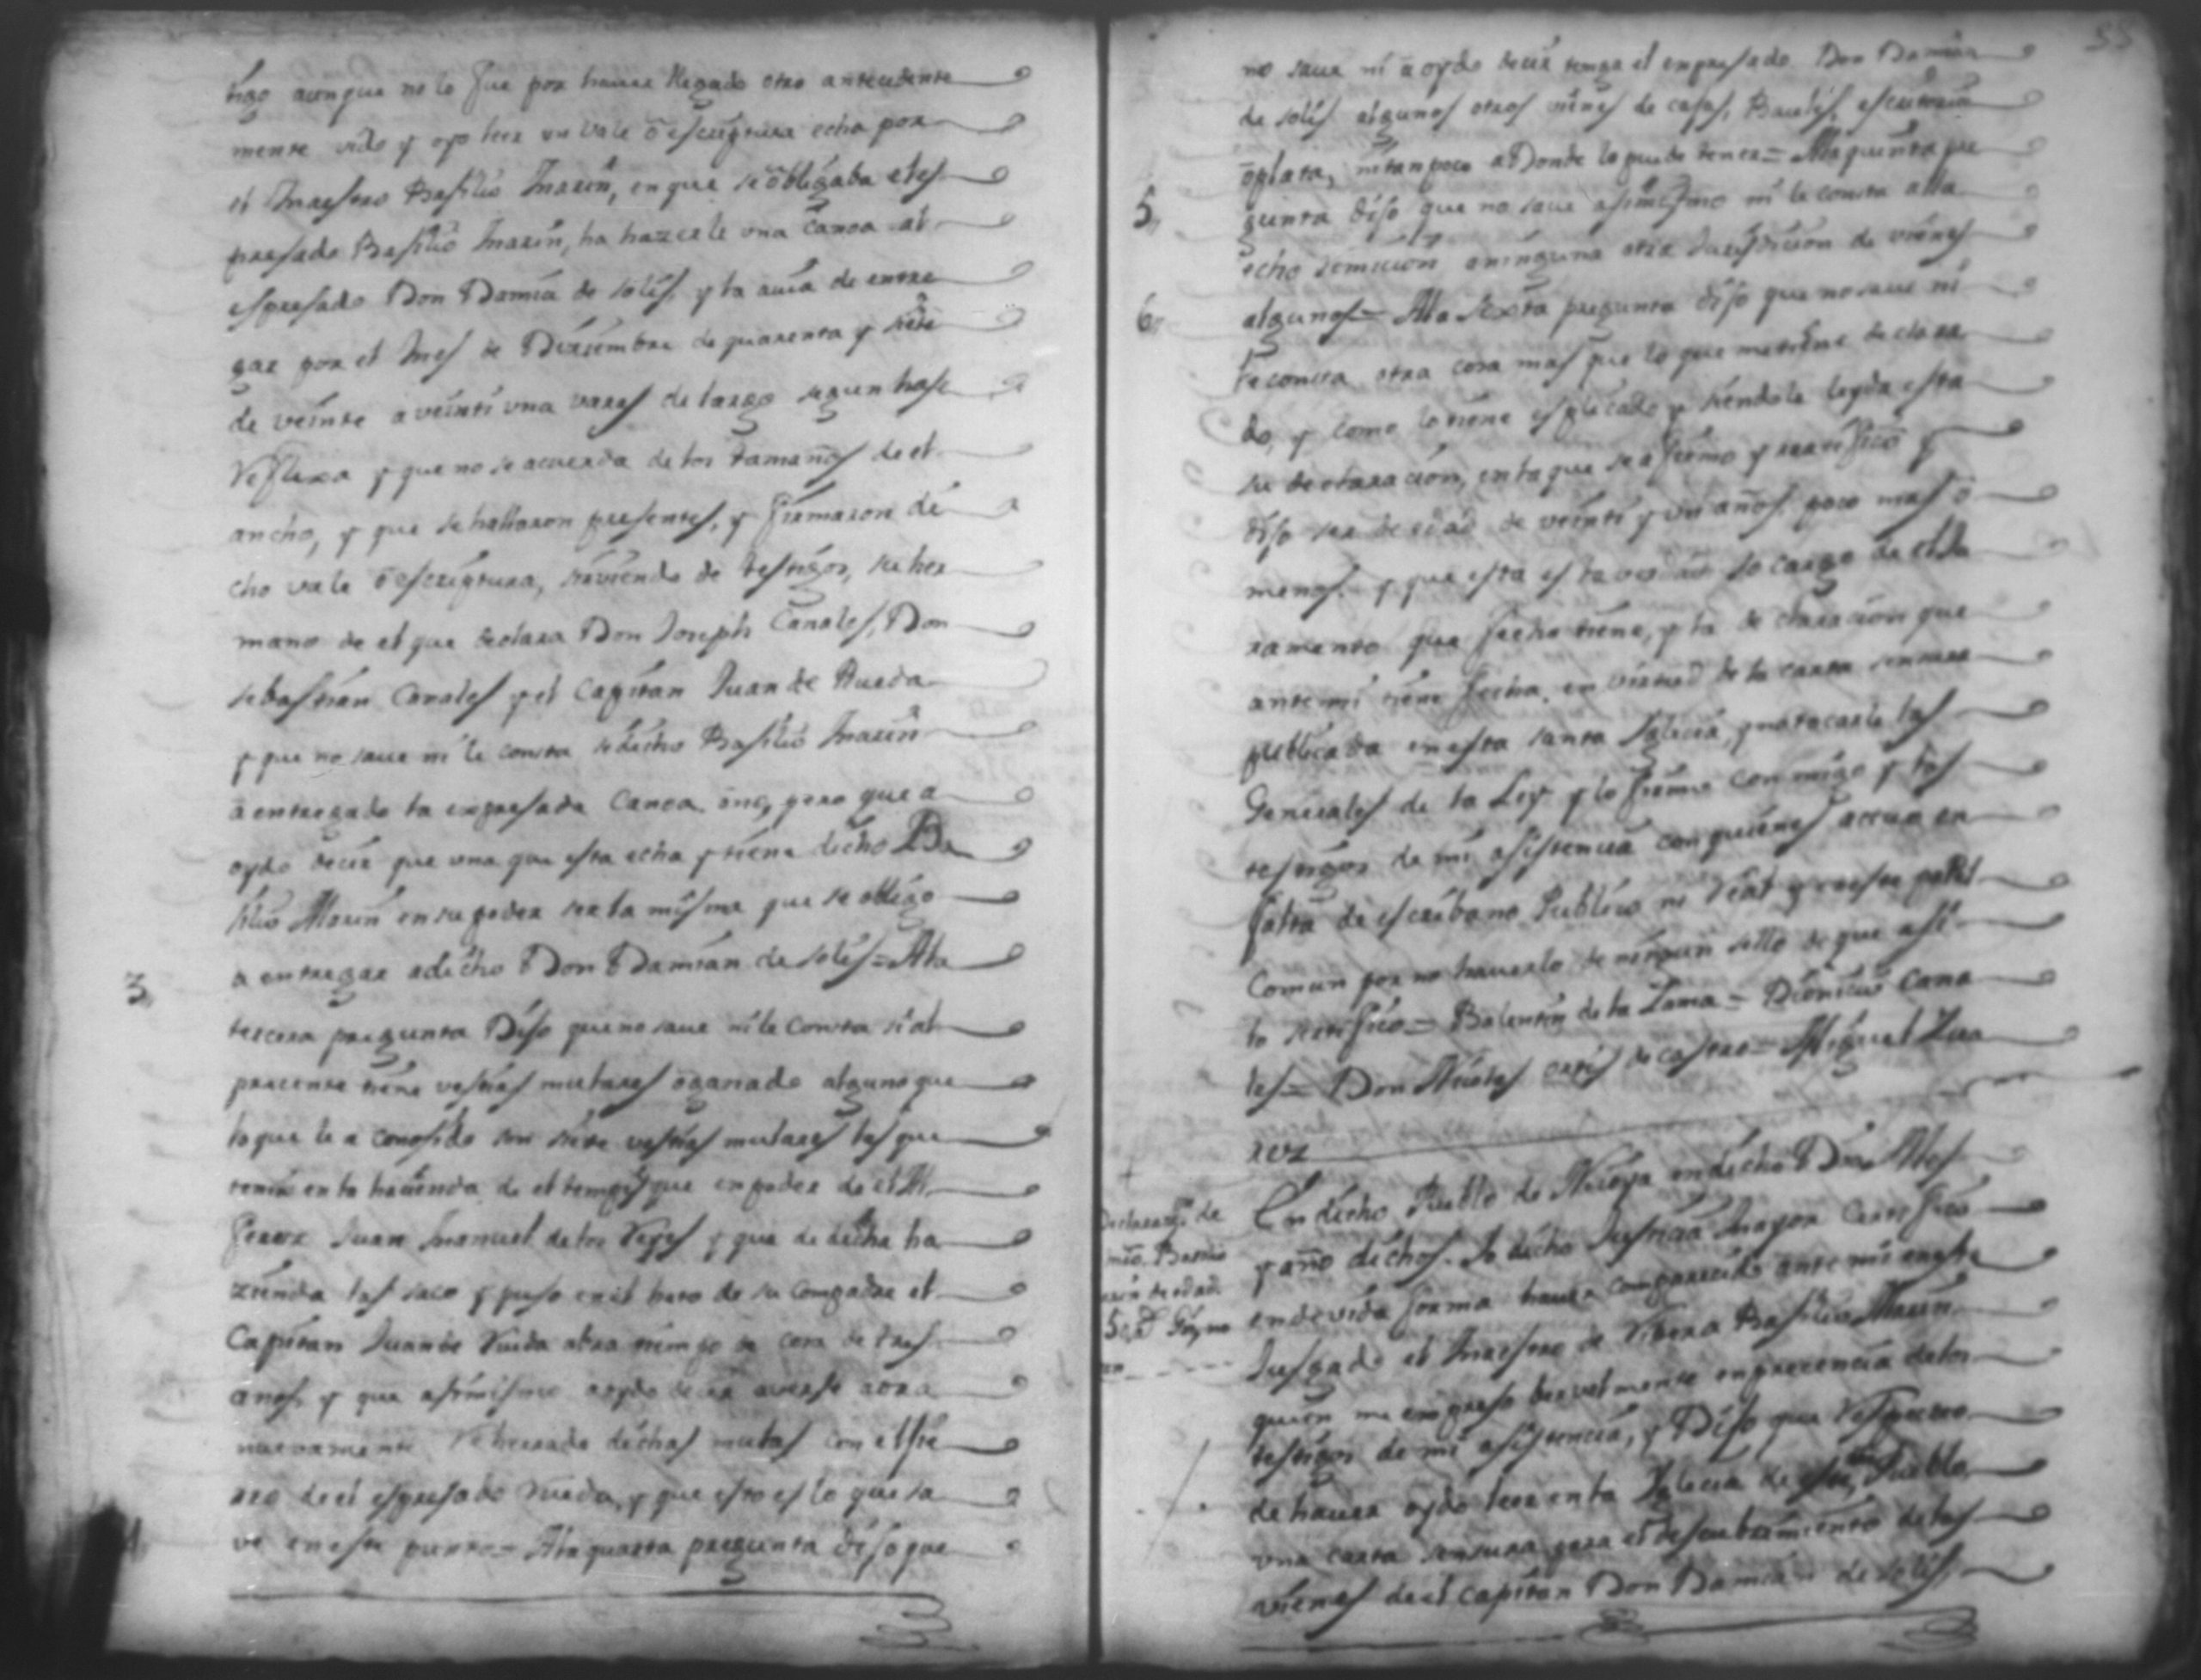 tigo aunque no lo fue por hauer llegado otro antecedente
mente vido y oyo leer un vale ô escriptura echa por
el Maestro Basilio Marin, en que se obligaba el es
presado Basilio Marin, ha hazerle una Canoa al
espresado Don Damian de solis, y la auia de entre
gar por el Mes de Disiembre de quarenta y siete
de veinte a veinti una varas de largo segun hase
Reflexa y que no se acuerda de los tamaños de el
ancho, y que se hallaron presentes, y firmaron di
cho vale ô escriptura, sirviendo de testigos, su her
mano de el que declara Don Joseph Canales, Don
sebastian Canales y el Capitan Juan de Rueda
y que no saue ni le consta si dicho Basilio Marin
a entregado la espresada Canoa ô no, pero que a
oydo decir que una que esta echa y tiene dicho Ba
silio Marin en su poder ser la misma que se obligo
a entregar a dicho Don Damian de solis = A la
3,, tercera pregunta Dijo que no saue ni le consta si al
precente tiene vestias mulares ô ganado alguno que
lo que le a conosido son siete vestias mulares las que
tenia en la hacienda de el tempisque en poder de el Al
ferez Juan Manuel de los Reyes y que de dicha ha
zienda las saco y puso en el hato de su compadre el
Capitan Juan de Rueda abra tiempo de cosa de tres
anos, y que asimismo a oydo decir averse aora
nuevamente Reherrado dichas mulas con el fie
rro de el espresado Rueda, y que esto es lo que sa
ve en este punto = A la quarta pregunta dijo que
55
no saue ni a oydo decir tenga el expresado Don Damian
de solis algunos otros vienes de casas, Baules, escriturias
ô plata, ni tanpoco a Donde lo puede tener = A la quinta pre
5,, gunta dijo que no saue asimismo ni le consta alla
echo remicion a ninguna otra Jurisdicion de vienes
6,, algunos = A la sexta pregunta dijo que no saue ni
le consta otra cosa mas que lo que me tiene declara
do, y como lo tiene esplicado y siendole leyda esta
su declaracion, en la que se afirmo y ratifico y
dijo ser de edad de veinti y un años, poco mas ô
menos, y que esta es la verdad so cargo de el Ju
ramento que fecho tiene, y la declaracion que
ante mi tiene fecha, en virtud de la carta sensura
publicada en esta santa Iglecia, y no tocarle las
Generales de la Ley y lo firmo conmigo y los
testigos de mi asistencia con quienes actuo en
falta de escribano Publico ni Real y en este papel
comun por no hauerlo de ningun sello de que asi
lo sertifico = Balentin de la Lama = Dionicio Cana
les = Don Nicolas ortis de castro = Miguel Jua
rez
En dicho Pueblo de Nicoya en dicho Dia, Mes
y año dichos. Yo dicho Justicia Mayor Certifico
en devida forma hauer comparecido ante mi en este
Jusgado el Maestro de Rivera Basilio Marin
quien me expreso bervalmente en precencia de los
testigos de mi asistencia, y Dijo que Respecto
de hauer oydo leer en la Iglecia de este Pueblo
una carta sensura para el descubrimiento de los
vienes de el capitan Don Damian de solis,